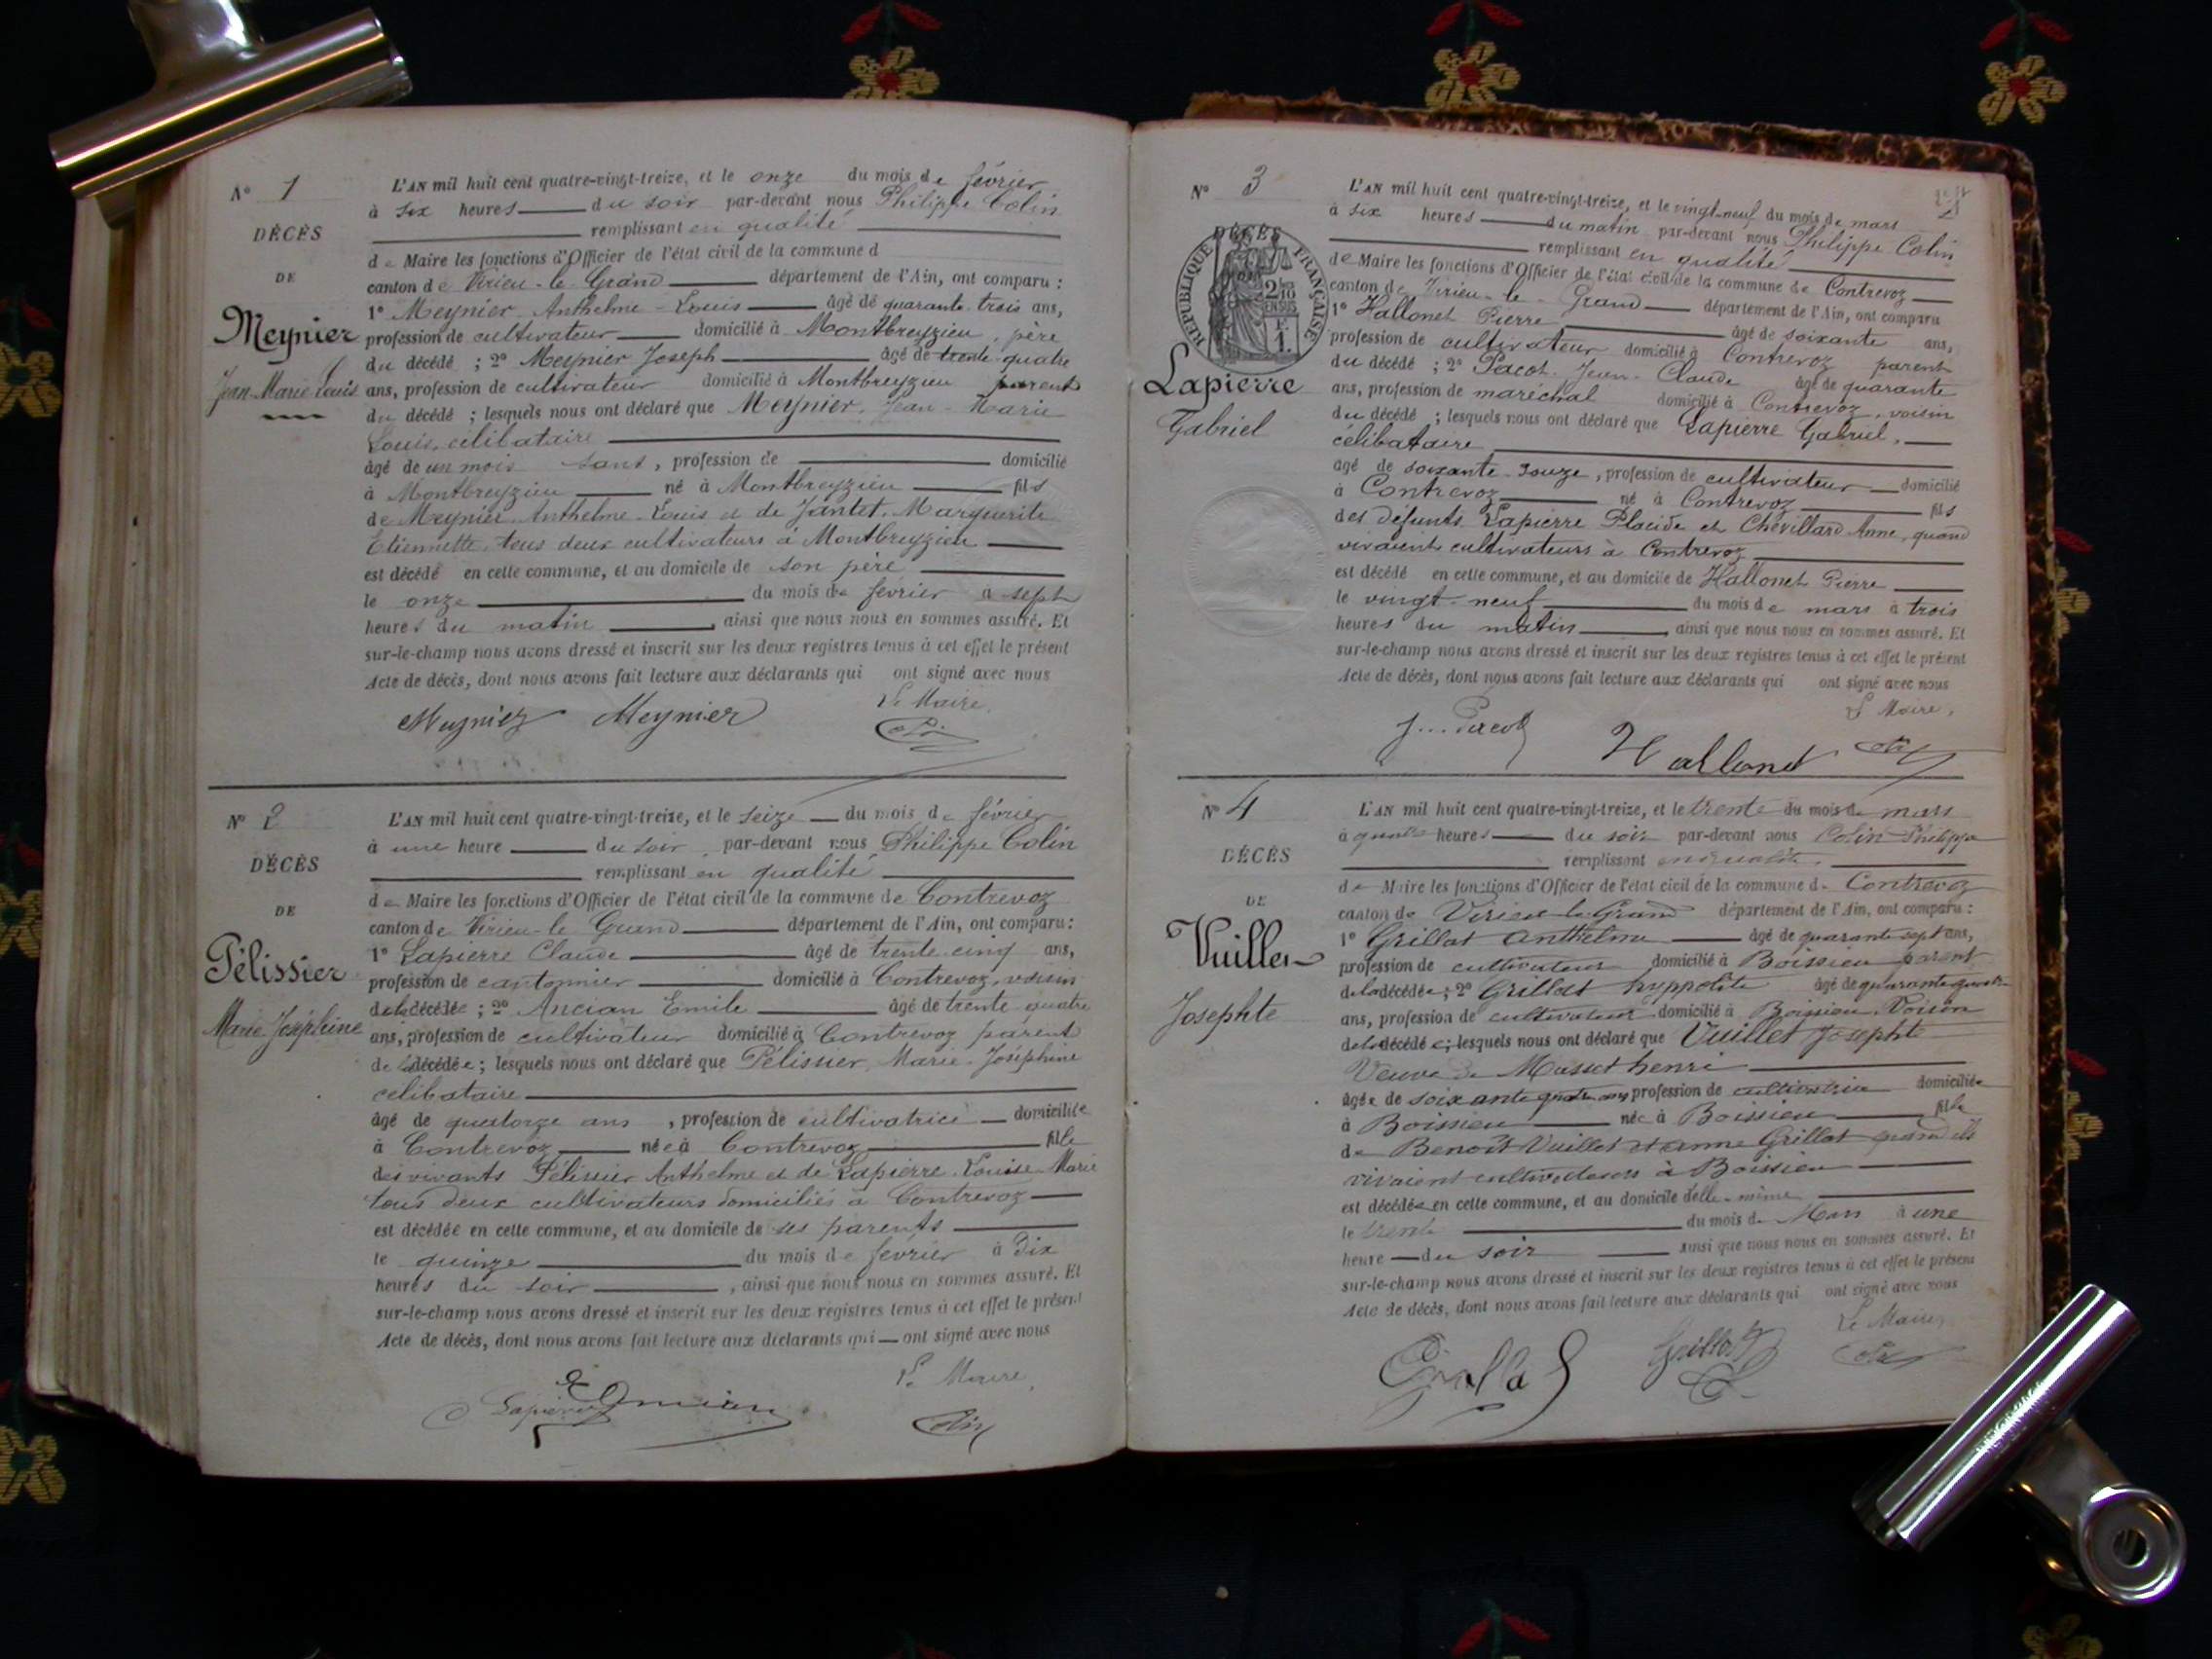 N° 1
DÉCÈS
DE
Meynier
Jean-Marie Louis
L'AN mil huit cent quatre-vingt-treize, et le onze du mois de février
à six heures du soir par-devant nous Philippe Colin
remplissant en qualité
de Maire les fonctions d'Officier de l'état civil de la commune d
canton de Virieu-le-Grand département de l'Ain, ont comparu :
1° Meynier Anthelme-Louis âgé de quarante-trois ans,
profession de cultivateur domicilié à Montbreyzieu, père
du décédé ; 2° Meynier Joseph âgé de trente-quatre
ans, profession de cultivateur domicilié à Montbreyzieu parent
du décédé ; lesquels nous ont déclaré que Meynier, Jean-Marie
Louis, célibataire
âgé de un mois sans, profession de domicilié
à Montbreyzieu né à Montbreyzieu fils
de Meynier Anthelme-Louis et de Jantet Marguerite
Etiennette, tous deux cultivateurs à Montbreyzieu
est décédé en cette commune, et au domicile de son père
le onze du mois de février à sept
heures du matin, ainsi que nous nous en sommes assuré. Et
sur-le-champ nous avons dressé et inscrit sur les deux registres tenus à cet effet le présent
Acte de décès, dont nous avons fait lecture aux déclarants qui ont signé avec nous
Le Maire,
Meynier Meynier Colin
N° 2
DÉCÈS
DE
Pélissier
Marie Joséphine
L'AN mil huit cent quatre-vingt-treize, et le seize du mois de février
à une heure du soir, par-devant nous Philippe Colin
remplissant en qualité
de Maire les fonctions d'Officier de l'état civil de la commune de Contrevoz
canton de Virieu-le-Grand département de l'Ain, ont comparu :
1° Lapierre Claude âgé de trente-cinq ans,
profession de cantonnier domicilié à Contrevoz, voisin
de la décédée ; 2° Ancian Emile âgé de trente-quatre
ans, profession de cultivateur domicilié à Contrevoz parent
de la décédée ; lesquels nous ont déclaré que Pélissier, Marie-Joséphine
célibataire
âgé de quatorze ans, profession de cultivatrice domiciliée
à Contrevoz née à Contrevoz fille
des vivants Pélissier Anthelme et de Lapierre Louise-Marie
tous deux cultivateurs domiciliés à Contrevoz
est décédée en cette commune, et au domicile de ses parents
le quinze du mois de février à dix
heures du soir, ainsi que nous nous en sommes assuré. Et
sur-le-champ nous avons dressé et inscrit sur les deux registres tenus à cet effet le présent
Acte de décès, dont nous avons fait lecture aux déclarants qui ont signé avec nous
Le Maire,
Lapierre Ancian Colin
N° 3
DÉCÈS
RÉPUBLIQUE FRANÇAISE
Lapierre
Gabriel
L'AN mil huit cent quatre-vingt-treize, et le vingt-neuf du mois de mars
à six heures du matin par-devant nous Philippe Colin
remplissant en qualité
de Maire les fonctions d'Officier de l'état civil de la commune de Contrevoz
canton de Virieu-le-Grand département de l'Ain, ont comparu
1° Hallonet Pierre âgé de soixante ans,
profession de cultivateur domicilié à Contrevoz parent
du décédé ; 2° Pacot Jean-Claude âgé de quarante
ans, profession de maréchal domicilié à Contrevoz, voisin
du décédé ; lesquels nous ont déclaré que Lapierre Gabriel,
célibataire
âgé de soixante-douze, profession de cultivateur domicilié
à Contrevoz né à Contrevoz fils
des défunts Lapierre Placide et Chevillard Anne, quand
vivaient cultivateurs à Contrevoz
est décédé en cette commune, et au domicile de Hallonet Pierre
le vingt-neuf du mois de mars à trois
heures du matin, ainsi que nous nous en sommes assuré. Et
sur-le-champ nous avons dressé et inscrit sur les deux registres tenus à cet effet le présent
Acte de décès, dont nous avons fait lecture aux déclarants qui ont signé avec nous
Le Maire,
Hallonet Colin
N° 4
DÉCÈS
DE
Vuillet
Josephte
L'AN mil huit cent quatre-vingt-treize, et le trente du mois de mars
à quatre heures du soir par-devant nous Colin Philippe
remplissant en qualité
de Maire les fonctions d'Officier de l'état civil de la commune de Contrevoz
canton de Virieu-le-Grand département de l'Ain, ont comparu :
1° Grillat Anthelme âgé de quarante sept ans,
profession de cultivateur domicilié à Boissieu parent
de la décédée ; 2° Grillat hyppolite âgé de quarante
ans, profession de cultivateur domicilié à Boissieu, Voisin
de la décédée ; lesquels nous ont déclaré que Vuillet Josephte
Veuve de Musset henri
âgée de soixante quatre ans profession de cultivatrice domiciliée
à Boissieu née à Boissieu fille
de Benoît Vuillet et anne Grillat quand ils
vivaient cultivateurs à Boissieu
est décédée en cette commune, et au domicile d'elle-même
le trente du mois de Mars à une
heure du soir ainsi que nous nous en sommes assuré. Et
sur-le-champ nous avons dressé et inscrit sur les deux registres tenus à cet effet le présent
Acte de décès, dont nous avons fait lecture aux déclarants qui ont signé avec nous
Le Maire,
Grillat Grillat Colin